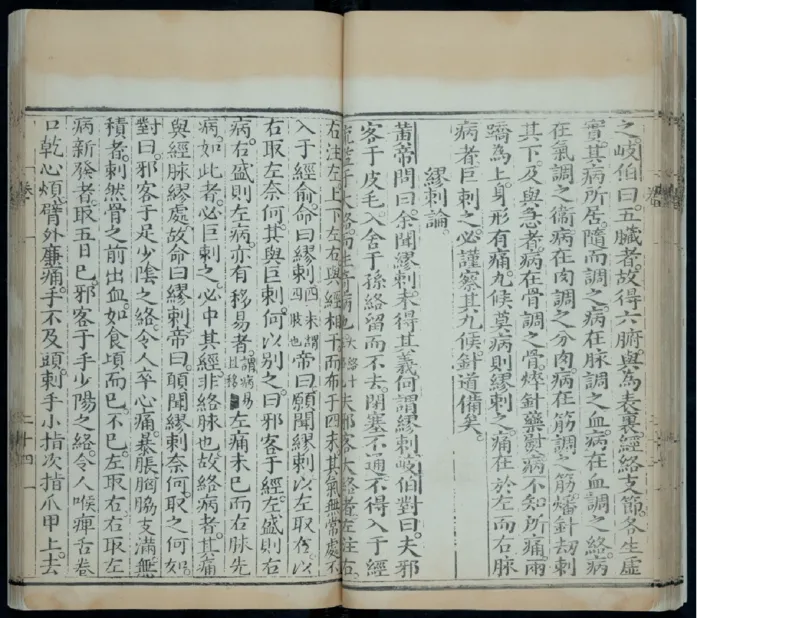 之岐伯曰。五臟者。故得六腑與為表裏。經絡支節。各生虛
實。其病所居。隨而調之。病在脉。調之血。病在血。調之絡。病
在氣。調之衞。病在肉。調之分肉。病在筋。調之筋。燔針刼刺
其下。及與急者。病在骨。調之骨。焠針藥熨。病不知所痛。兩
蹻為上。身形有痛。九候莫病。則繆刺之。痛在於左而右脉
病者。巨刺之。必謹察其九候。針道備矣。
繆刺論。
黃帝問曰。余聞繆刺。未得其義。何謂繆刺。岐伯對曰。夫邪
客于皮毛。入舍于孫絡。留而不去。閉塞不通。不得入于經。
于大絡。而生奇病也。夫邪客大絡者。左注右。
右注左。上下左右。與經相干。而布于四末。其氣無常處。不
入于經俞。命曰繆刺。四末謂四肢也帝曰。願聞繆刺。以左取右。以
右取左。奈何。其與巨刺。何以別之。曰。邪客于經。左盛則右
病。右盛則左病。亦有移易者。謂病易且移左痛未已。而右脉先
病。如此者。必巨刺之。必中其經。非絡脉也。故絡病者。其痛
與經脉繆處。故命曰繆刺。帝曰。願聞繆刺奈何。取之何如。
對曰。邪客于足少陰之絡。令人卒心痛。暴脹。胸脇支滿。無
積者。刺然骨之前出血。如食頃而已。不已。左取右。右取左。
病新發者。取五日已。邪客于手少陽之絡。令人喉痺舌卷。
口乾心煩。臂外廉痛。手不及頭。刺手小指次指爪甲上。去
二十四